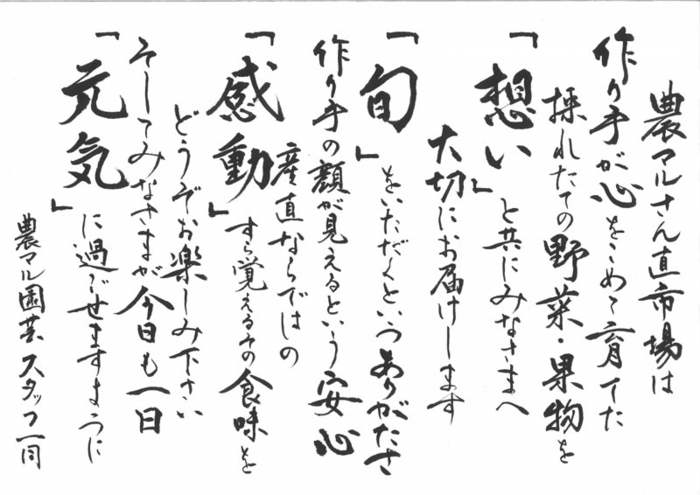 農マルさん直市場は
作り手が心をこめて育てた
採れたての野菜・果物を
「想い」と共にみなさまへ
大切にお届けします
「旬」をいただくというありがたさ
作り手の顔が見えるという安心
産直ならではの
「感動」すら覚えるその食味を
どうぞお楽しみ下さい
そしてみなさまが今日も一日
「元気」に過ごせますように
農マル園芸 スタッフ一同